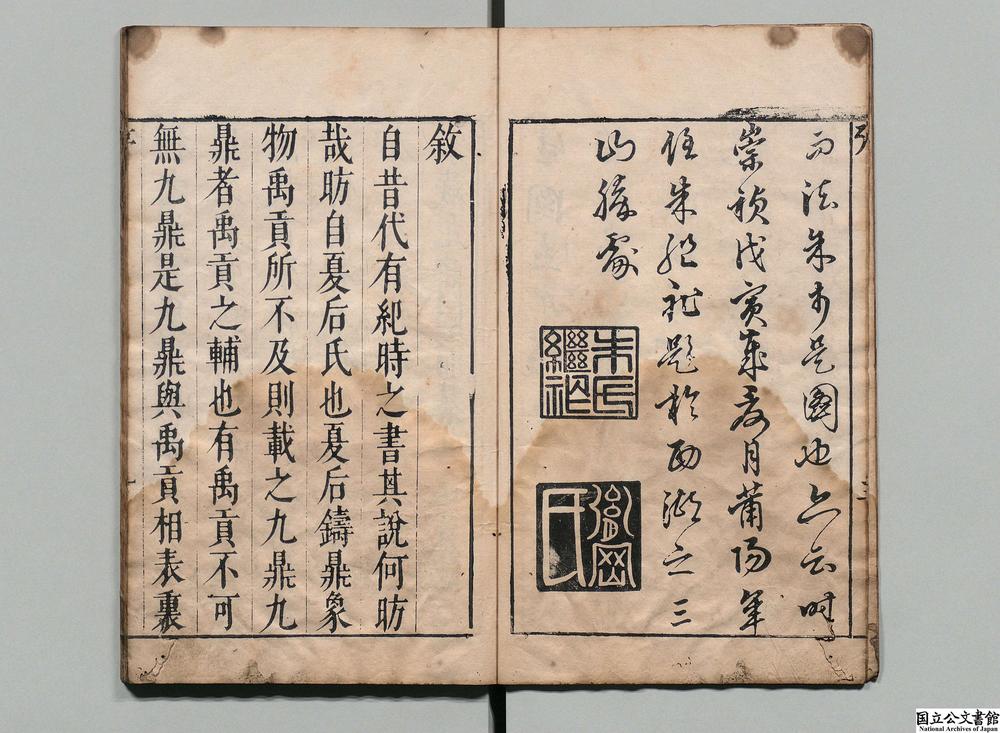 序
三
而法是圖也亦云時
崇禎戊寅歲夌月莆陽年
侄朱繼祚題於西湖之三
山勝處
朱氏繼祚
胤岡氏
敘
自昔代有紀時之書其說何昉
哉昉自夏后氏也夏后鑄鼎象
物禹貢所不及則載之九鼎九
鼎者禹貢之輔也有禹貢不可
無九鼎是九鼎與禹貢相表裏
国立公文書館
National Archives of Japan